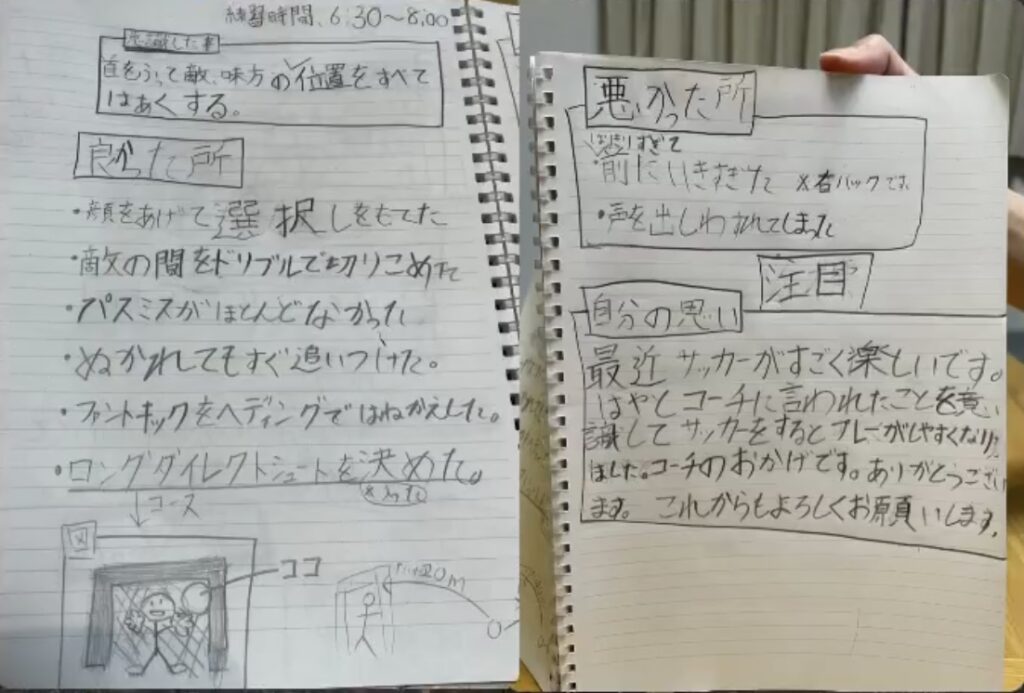 練習時間、6:30～8:00
意識した事
首をふって敵、味方の位置をすべて
はあくする。
良かった所
・顔をあげて選択しをもてた
・敵の間をドリブルで切りこめた
・パスミスがほとんどなかった
・ぬかれてもすぐ追いつけた。
・ファントキックをヘディングではねかえした。
・ロングダイレクトシュートを決めた。
↓コース
図
ココ
20m
悪かった所
すぎて
・前にいきすぎた ※右バックです。
・声を出しわすれてしまった
注目
自分の思い
最近サッカーがすごく楽しいです。
はやとコーチに言われたことを意
識してサッカーをするとプレーがしやすくなり
ました。コーチのおかげです。ありがとうござい
ます。これからもよろしくお願いします。